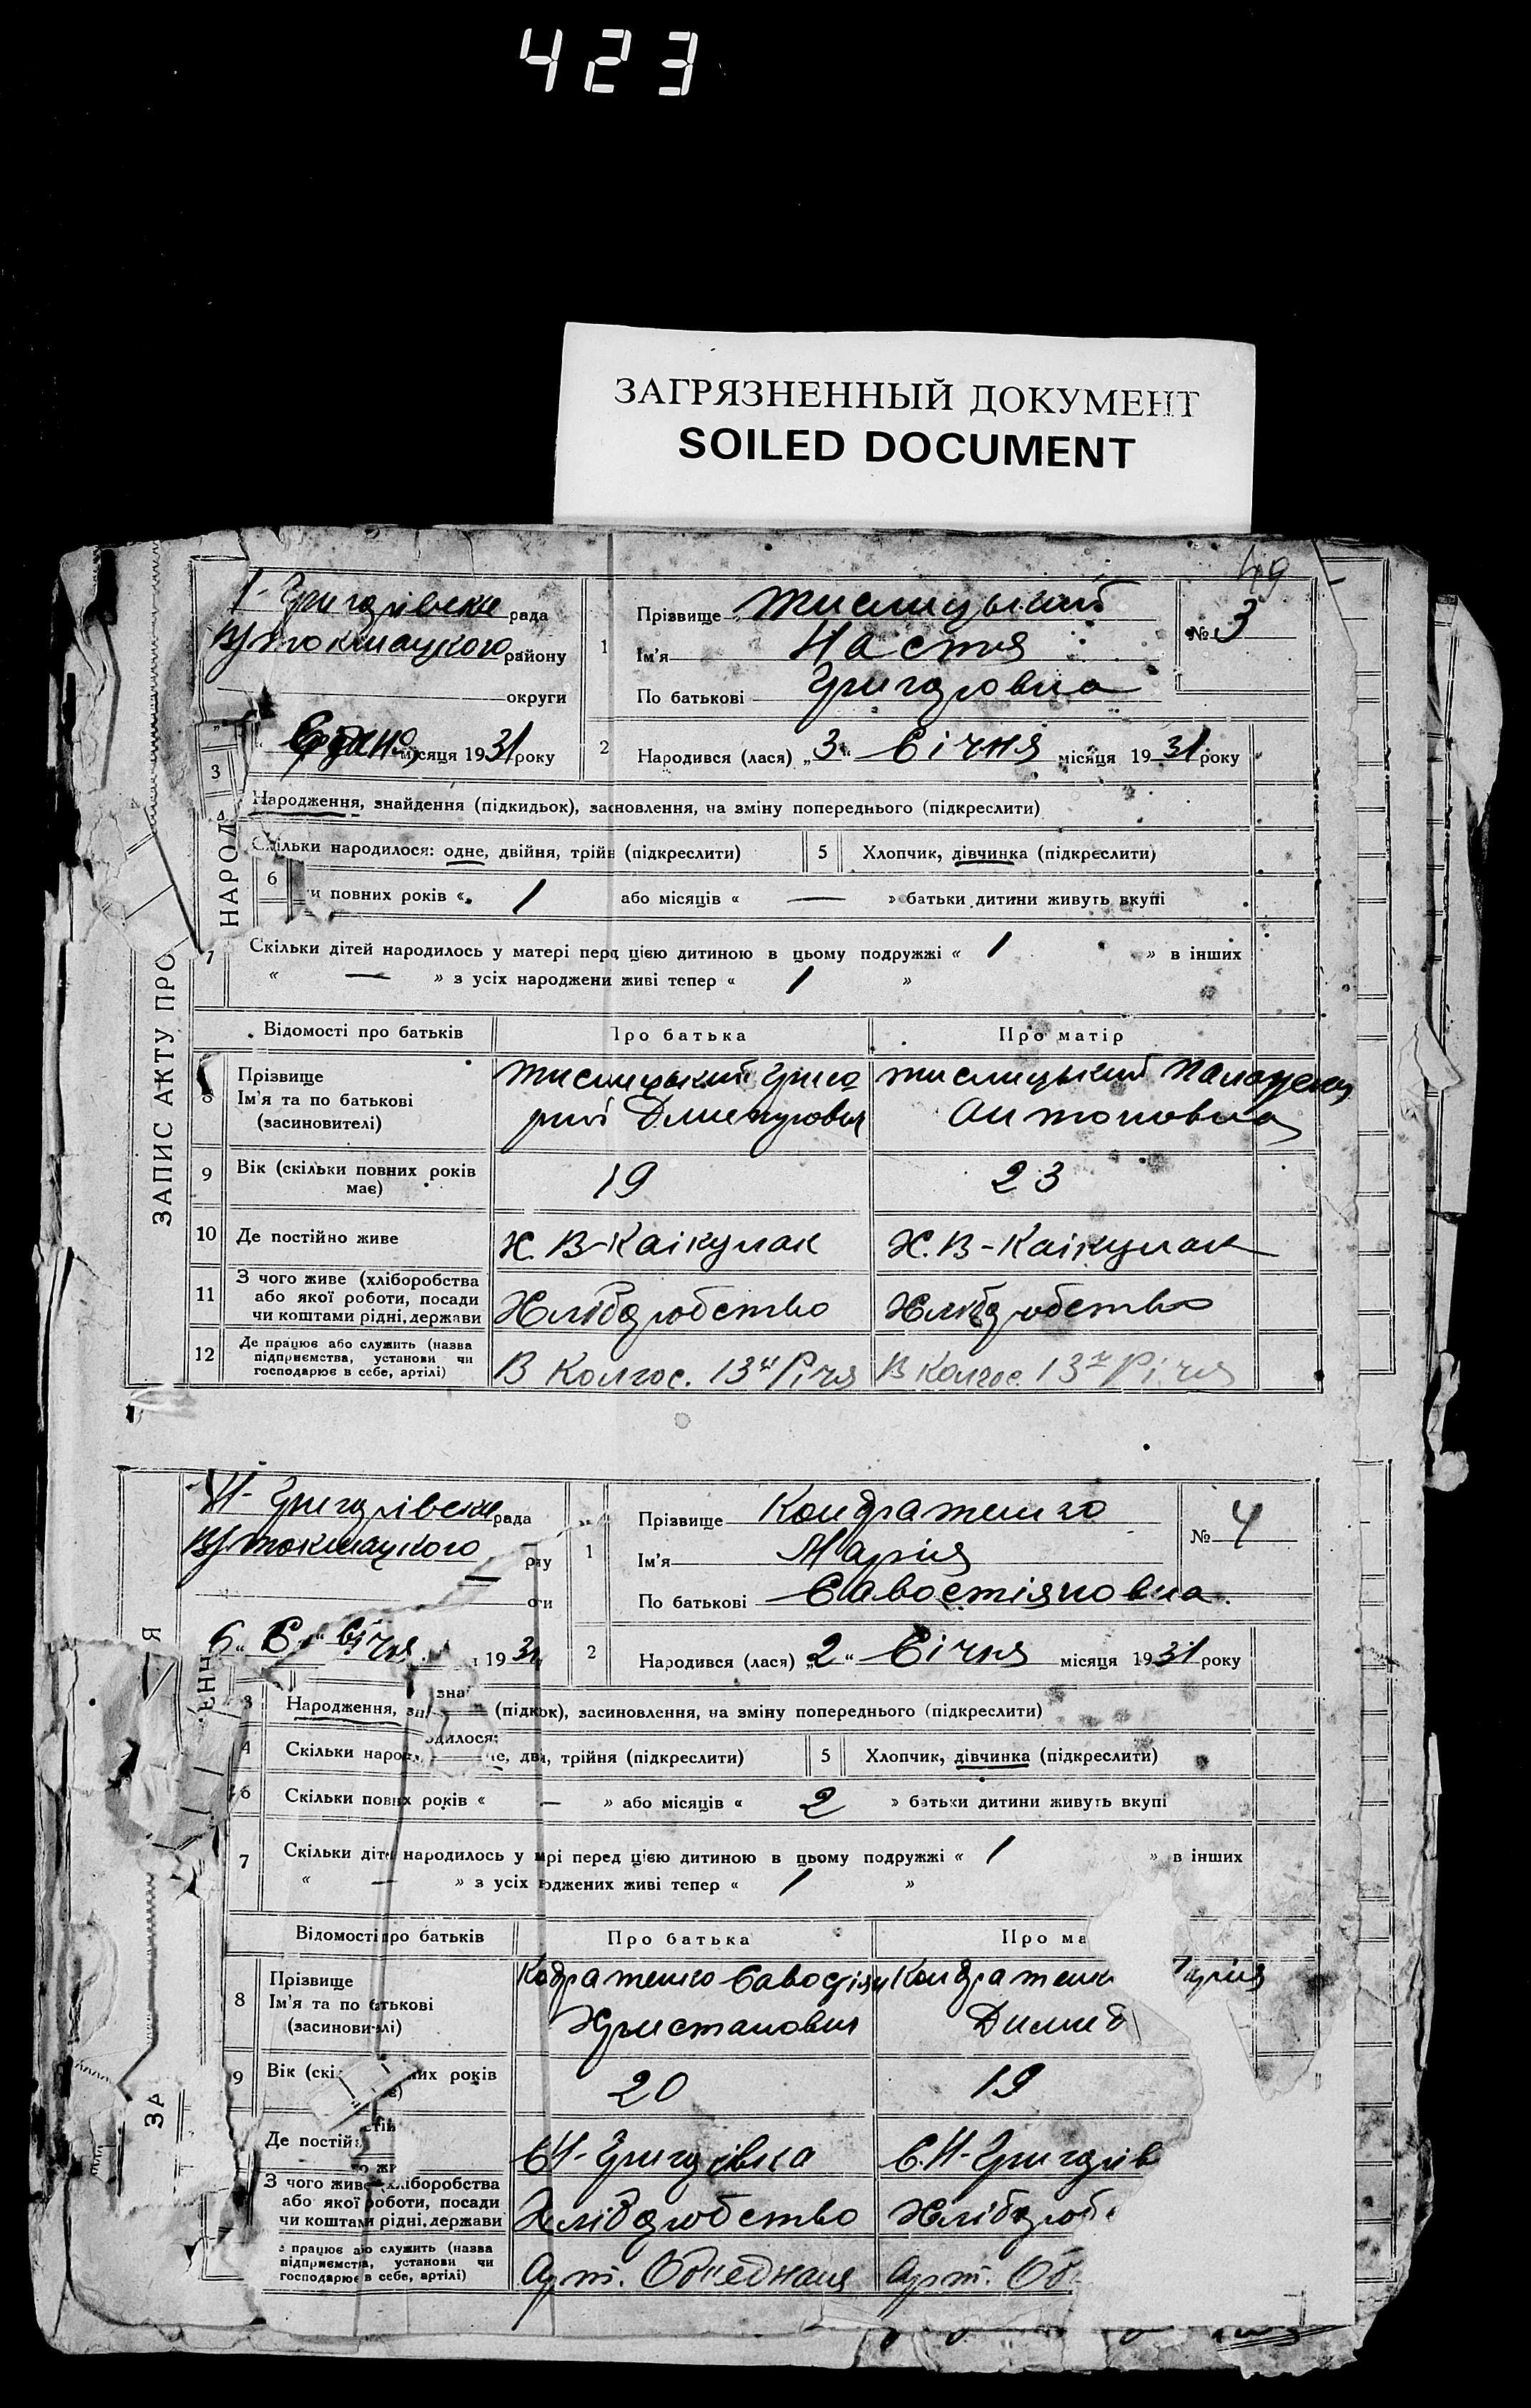 423
ЗАГРЯЗНЕННЫЙ ДОКУМЕНТ
SOILED DOCUMENT
49
рада
району
округи
місяця 1931 року
1
Прізвище
Ім'я Настя
По батькові Григоровна
№ 3
2
Народився (лася) „3“ Січня місяця 1931 року
ЗАПИС АКТУ ПРО
НАРОД
3
Народження, знайдення (підкидьок), засновлення, на зміну попереднього (підкреслити)
4
Скільки народилося: одне, двійня, трійн (підкреслити)
5 Хлопчик, дівчинка (підкреслити)
6
ки повних років « 1 або місяців « — » батьки дитини живуть вкупі
7
Скільки дітей народилось у матері перд цією дитиною в цьому подружжі « 1 » в інших
« — » з усіх народжени живі тепер « 1 »
Відомості про батьків Про батька Про матір
8
Прізвище
Ім'я та по батькові
(засиновителі)
Антоновна
9 Вік (скільки повних років має) 19 23
10 Де постійно живе Х. В-Каікулак Х. В-Каікулак
11 З чого живе (хліборобства
або якої роботи, посади
чи коштами рідні, держави
Хліборобство Хліборобство
12 Де працює або служить (назва
підприємства, установи чи
господарює в себе, артілі)
В Колгос. 13 Річя В Колгос. 13 Річя
рада
1
Прізвище Кондратенко
Ім'я Марія
По батькові Савостіяновна
№ 4
1931
2
Народився (лася) „2“ Січня місяця 1931 року
3 Народження, (підкок), засиновлення, на зміну попереднього (підкреслити)
4 Скільки народ двi, трійня (підкреслити)
5 Хлопчик, дівчинка (підкреслити)
6 Скільки повних років « — » або місяців « 2 » батьки дитини живуть вкупі
7 Скільки діте народилось у мрі перед цією дитиною в цьому подружжі « 1 » в інших
« — » з усіх юджених живі тепер « 1 »
Відомості про батьків Про батька Про ма
8
Прізвище
Ім'я та по батькові
(засинови
Кодратенко
Христанович
20 19
9 Вік (скі них років
Де постій
С Н-Григорівка С. Н-Григорів
З чого живе хліборобства
або якої роботи, посади
чи коштами рідні, держави
Хліборобство Хлібороб
працює або служить (назва
підприємства, установи чи
господарює в себе, артілі)
Арт. Об'єднаня Арт. Об